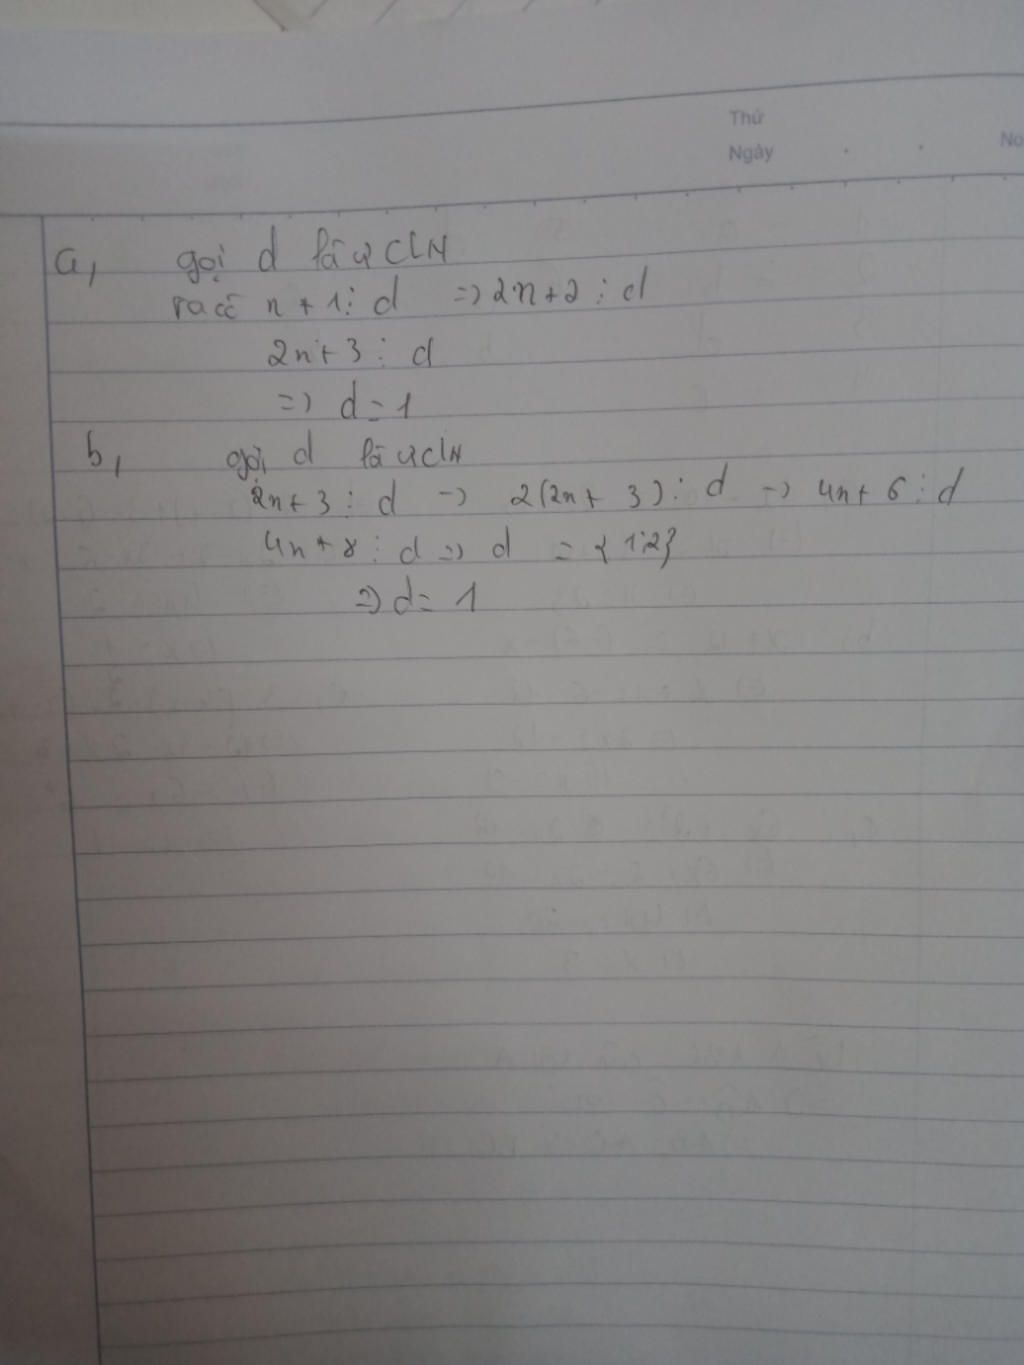 Thứ
Ngày
No
a, gọi d là ƯCLN
ta có n + 1 ⋮ d => 2n + 2 ⋮ d
2n + 3 ⋮ d
=> d = 1
b, gọi d là ƯCLN
2n + 3 ⋮ d -> 2(2n + 3) ⋮ d -> 4n + 6 ⋮ d
4n + 8 ⋮ d => d = {1;2}
=> d = 1